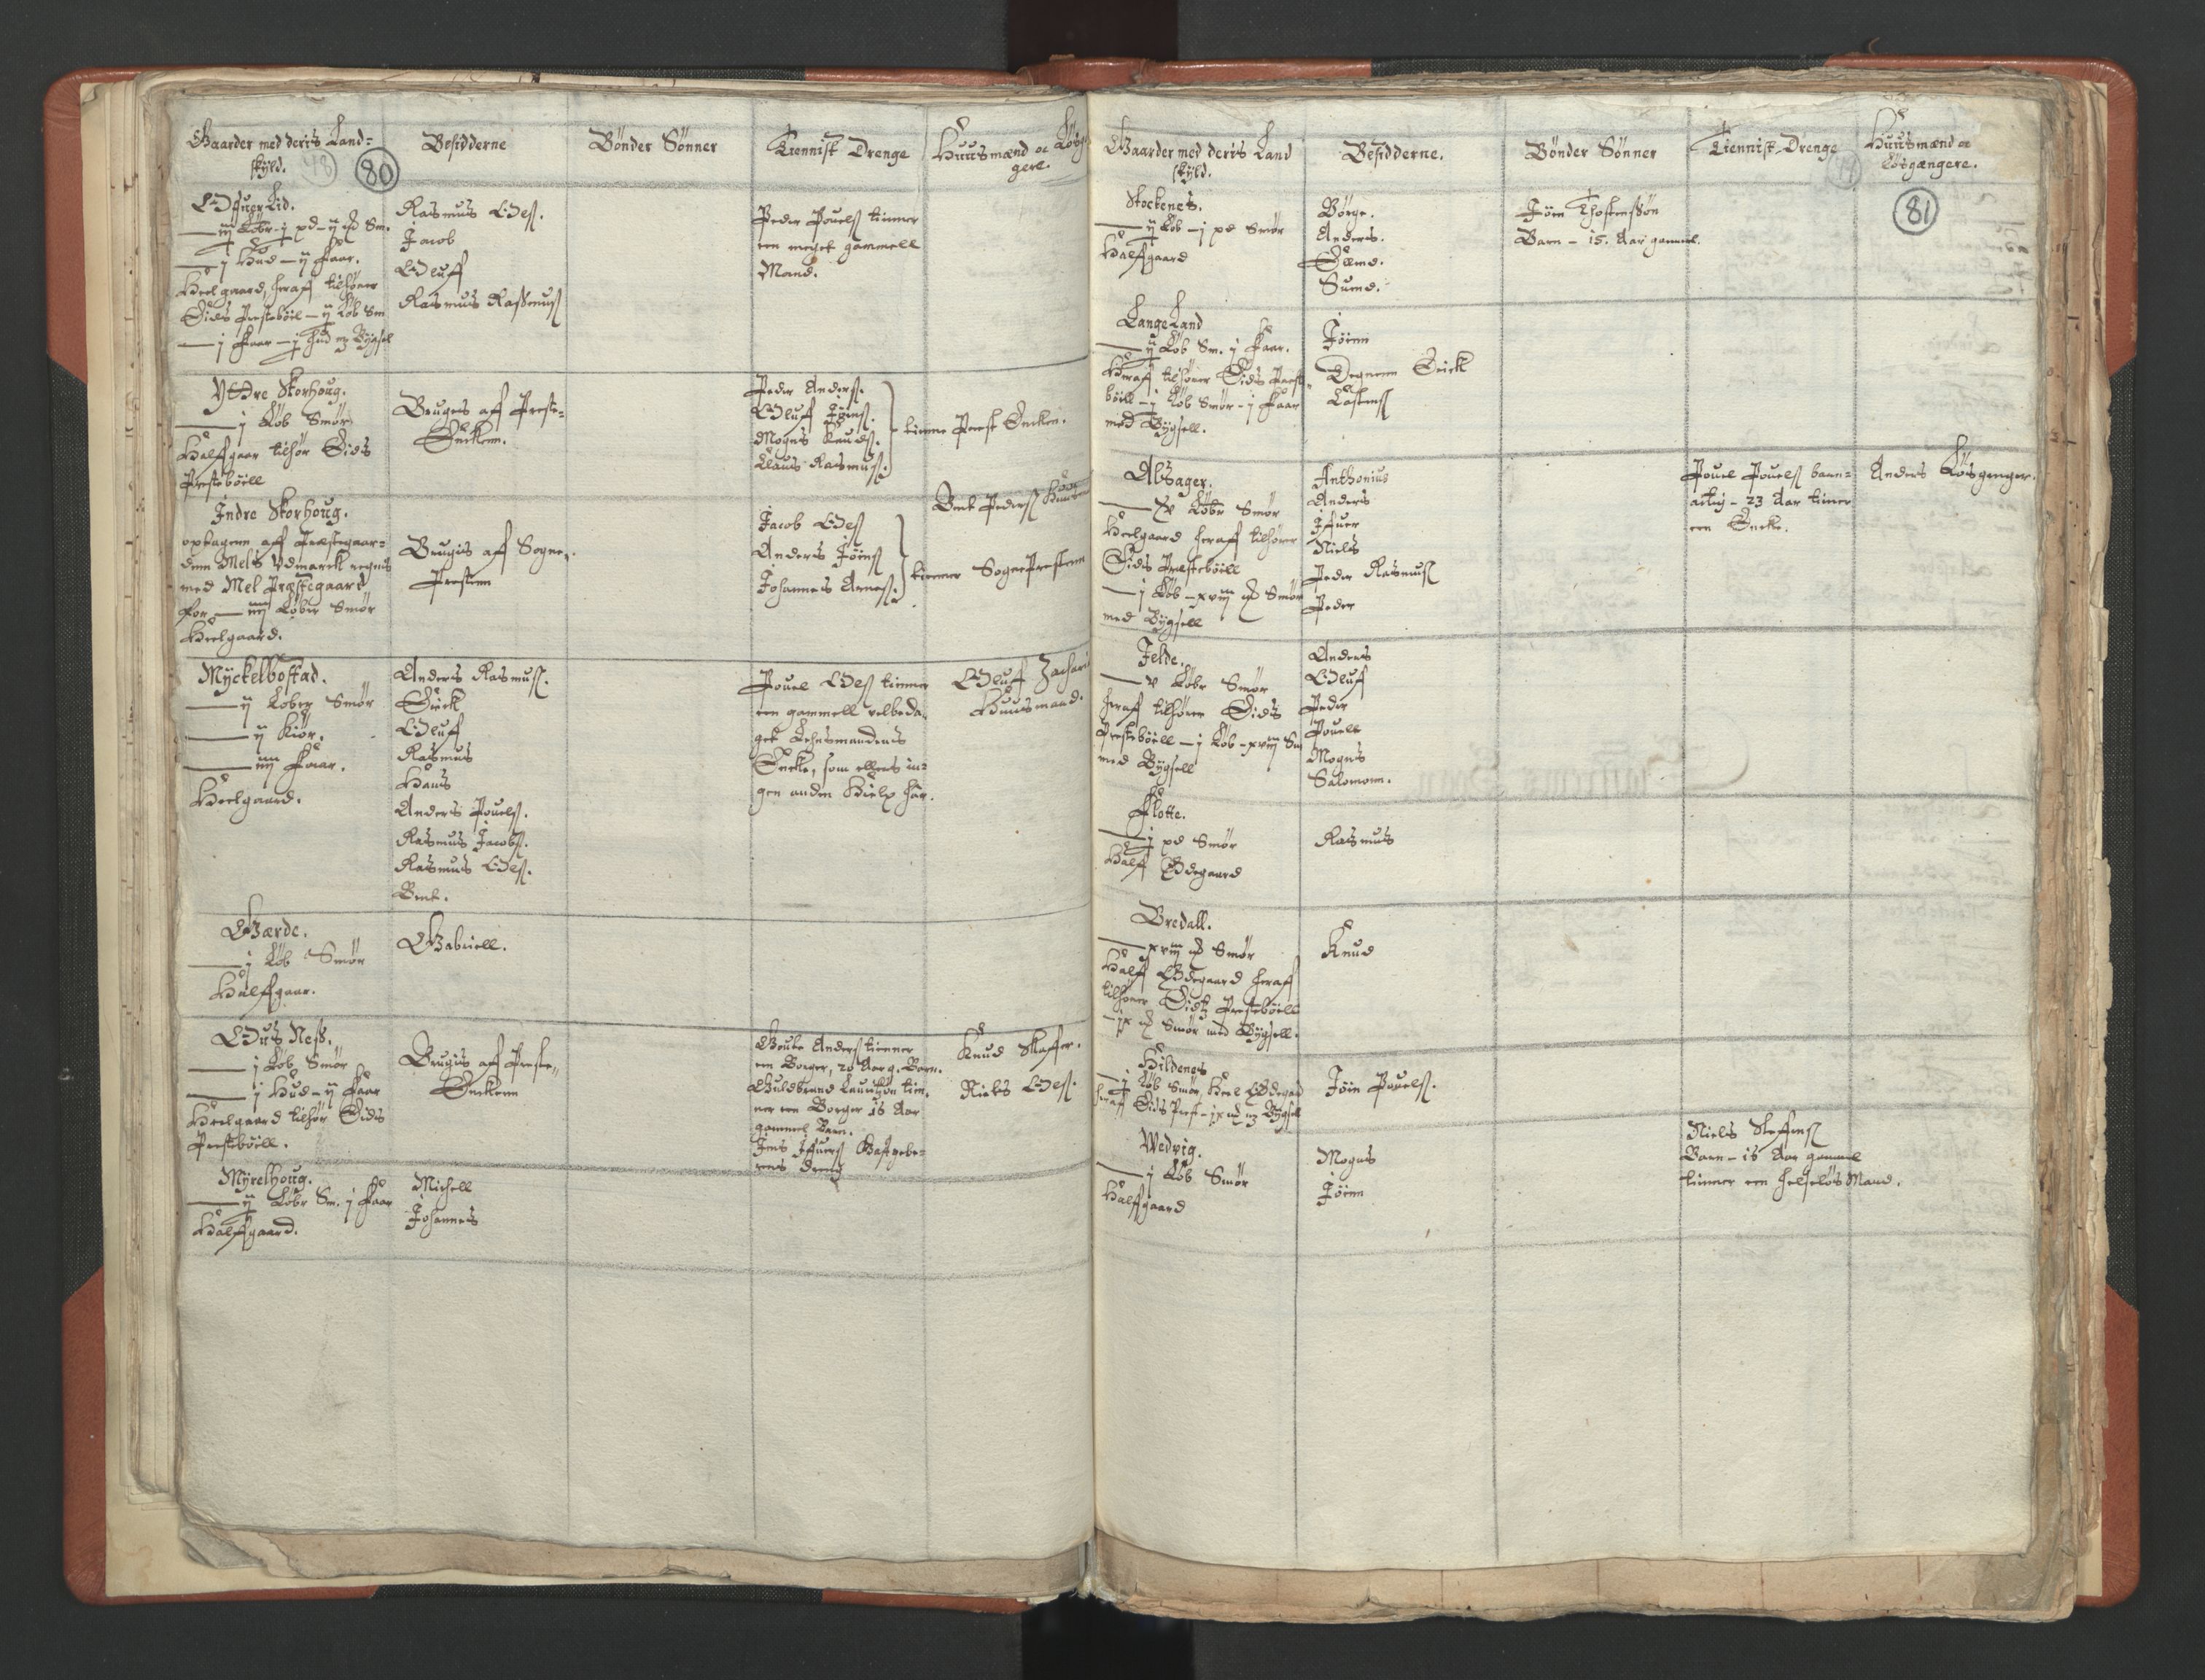 Gaarder med deris Land=
skyld.
80
Besidderne
Bønder Sønner
Tiennist Drenge
Huusmænd oc Løsg
gere.
Offuer Lid.
iij Løbr - j pd - ij m℔ Sm.
j Hud - ij Faar.
Heel gaard, heraff tilhører
Eids Prestebøil - ij Løb Sm
j Faar - j Hud m3 Bygsel
Rasmus Olß.
Jacob
Oluff
Rasmus Raßmusß
Peder Pouelß tienner
een meget gammell
Mand.
Ytdre Skorhoug.
j Løb Smør
Halffgaar tilhør Eids
Prestebøill
Brugis aff Preste=
Enckenn.
Peder Anderß.
Oluff Jøinß.
Mogns Knudß.
Claus Rasmusß.
tienne Prest Encken.
Indre Skorhoug.
optagenn aff Præstegaar=
denn Mels Vdmarck regnis
med Mel Præstegaard
for - iiij Løber Smør
Heelgaard.
Brugis aff Sogne,,
Prestenn
Jacob Olß
Anders Jøinß
Johannes Arneß.
tienner SognePrestenn
Bent Pederß Huusm
Myckelbostad.
ij Løber Smør
ij Kiør.
iiij Faar.
Heelgaard.
Anders Rasmusß.
Erick
Oluff
Rasmus
Hans
Anders Pouelß.
Rasmus Jacobß.
Rasmus Olß.
Bent.
Pouel Olß tienner
een gammell velbeda,
get Lehnsmandens
Encke, som ellers in=
gen anden Hielp har.
Oluff Zachari
Huusmand.
Gærde.
j Løb Smør
Halffgaar.
Gabriell.
Ous Neß.
j Løb Smør
j Hud - ij Faar
Heelgaard tilhør Eids
Prestebøill.
Brugis aff Preste,,
Enckenn
Goute Anderß tienner
een Borger, 20 Aar g. Barn.
Guldbrand Lauritzøn tien,
ner een Borger 15 Aar
gammel Barn.
Jens Iffuerß Gastgebe=
rens dreng
Knud Skaffer.
Niels Olß.
Myrelhoug.
ij Løbr Sm. j Faar
Halffgaard.
Michell
Johannes
Gaarder med deris Land
skyld.
Besidderne.
Bønder Sønner
Tiennist Drenge
Huusmænd oc
Løsgængere.
81
Stockenes.
ij Løb - j pd Smør
Halffgaard
Børge.
Anders.
Ellend.
Suend.
Jøen Thostenssøn
Barn - 15. Aar gammel.
LangeLand
ij Løb Sm. j Faar.
Heraff tilhører Eids Preste=
bøill - j Løb Smør - j Faar
med Bygsell.
Jøenn
Degnenn Erick
Lastenß
Abßager.
Løbr Smør
Heelgaard heraff tilhører
Eids Præstebøill
j Løb - xviij m℔ Smør
med Bygsell
Anthonius
Anders
Iffuer
Niels
Peder Rasmusß
Peder
Pouel Pouelß barn=
actig - 23 Aar tiener
een Encke.
Anders Løsgenger.
Jelde.
v Løbr Smør
heraff tilhører Eids
Prestebøill - j Løb - xviij Sm
med Bygsell
Anders
Oluff
Peder
Pouell
Mogns
Salomonn.
Flotte.
j pd Smør
Half Ødegaard
Rasmus
Bredall.
xviij m℔ Smør
Half Ødegaard heraff
tilhører Eids Prestebøill
ix m℔ Smør med Bygsell.
Knud
Hildenes
j Løb Smør, Heel Ødegaard
heraff Eids Prest - ix m℔ m3 Bygsell
Jøin Pouelß.
Wedvig.
j Løb Smør
Halffgaard
Mogns
Jøenn
Niels Steffenß
Barn - 15 Aar gammel
tienner een helseløs Mand.